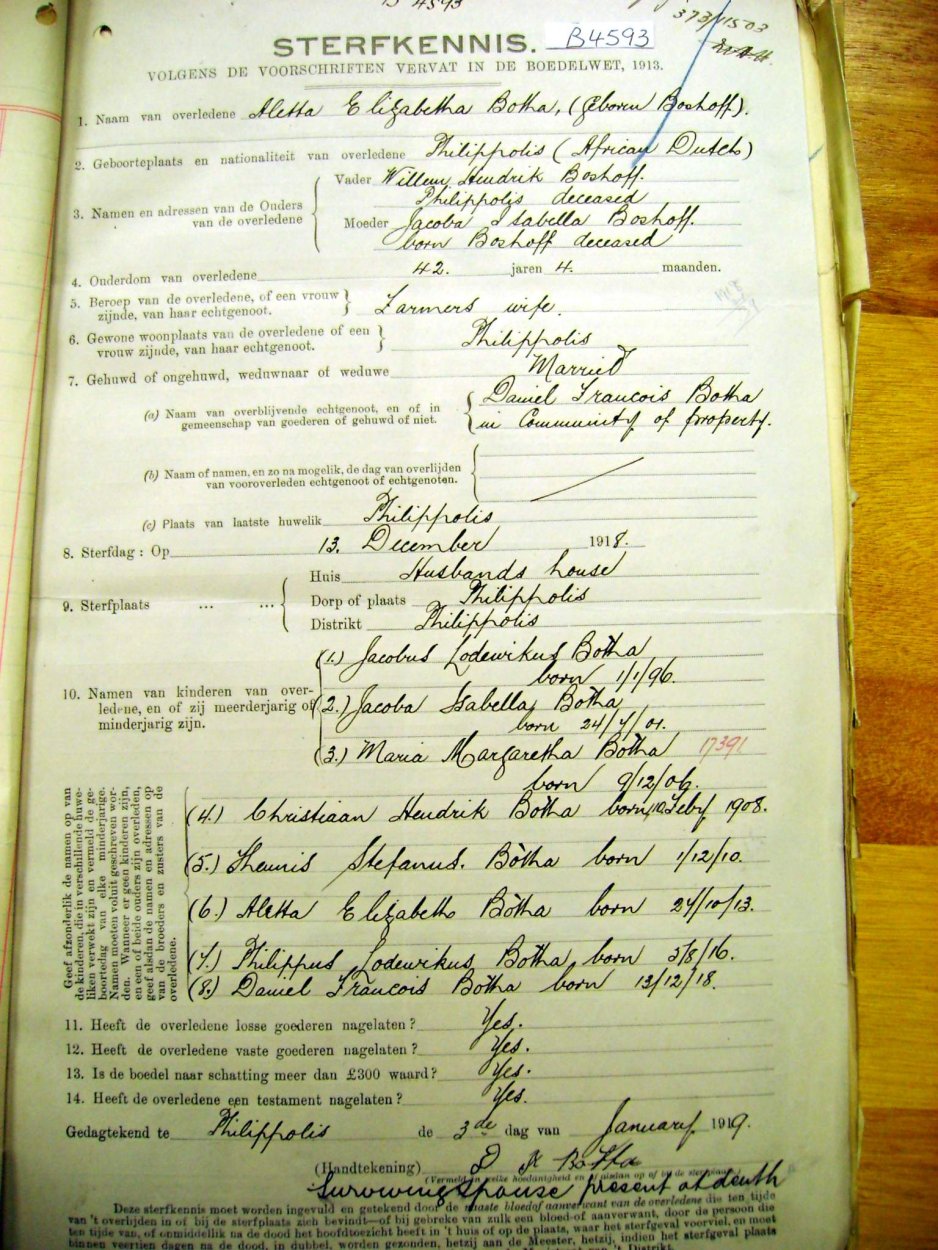 B 4593
373/11503
STERFKENNIS. B4593
VOLGENS DE VOORSCHRIFTEN VERVAT IN DE BOEDELWET, 1913.
1. Naam van overledene Aletta Elizabetha Botha, (geboren Boshoff).
2. Geboorteplaats en nationaliteit van overledene Philippolis (African Dutch)
3. Namen en adressen van de Ouders van de overledene
Vader Willem Hendrik Boshoff.
Philippolis deceased
Moeder Jacoba Isabella Boshoff.
born Boshoff deceased
4. Ouderdom van overledene 42. jaren 4. maanden.
5. Beroep van de overledene, of een vrouw
zijnde, van haar echtgenoot. Farmers wife.
6. Gewone woonplaats van de overledene of een
vrouw zijnde, van haar echtgenoot. Philippolis
7. Gehuwd of ongehuwd, weduwnaar of weduwe Married
(a) Naam van overblijvende echtgenoot, en of in
gemeenschap van goederen of gehuwd of niet.
Daniel Francois Botha
in Community of property.
(b) Naam of namen, en zo na mogelik, de dag van overlijden
van vooroverleden echtgenoot of echtgenoten.
(c) Plaats van laatste huwelik Philippolis
8. Sterfdag: Op 13. December 1918.
9. Sterfplaats ... ...
Huis Husbands house
Dorp of plaats Philippolis
Distrikt Philippolis
10. Namen van kinderen van over-
ledene, en of zij meerderjarig of
minderjarig zijn.
(1.) Jacobus Lodewikus Botha
born 1/1/96.
(2.) Jacoba Isabella Botha
born 24/4/01.
(3.) Maria Margaretha Botha 17391
born 9/12/06.
Geef afzonderlik de namen op van
de kinderen, die in verschillende huwe-
liken verwekt zijn en vermeld de ge-
boortedag van elke minderjarige.
Namen moeten voluit geschreven wor-
den. Wanneer er geen kinderen zijn,
en een of beide ouders zijn overleden,
geef alsdan de namen en adressen op
van de broeders en zusters van de
overledene.
(4.) Christiaan Hendrik Botha born 10 Feby 1908.
(5.) Theunis Stefanus. Botha born 1/12/10.
(6.) Aletta Elizabeth Botha born 24/10/13.
(7.) Philippus Lodewikus Botha born 5/8/16.
(8.) Daniel Francois Botha born 13/12/18.
11. Heeft de overledene losse goederen nagelaten? Yes.
12. Heeft de overledene vaste goederen nagelaten? Yes.
13. Is de boedel naar schatting meer dan £300 waard? Yes.
14. Heeft de overledene een testament nagelaten? Yes.
Gedagtekend te Philippolis de 3de dag van January 1919.
(Handtekening) D F Botha
(Vermeld in welke hoedanigheid en of aldan op of bij de sterfplaats)
Surviving spouse present at death
Deze sterfkennis moet worden ingevuld en getekend door de naaste bloedof aanverwant van de overledene die ten tijde
van 't overlijden in of bij de sterfplaats zich bevindt—of bij gebreke van zulk een bloed-of aanverwant, door de persoon die
ten tijde van, of onmiddellik na de dood het hoofdtoezicht heeft in 't huis of op de plaats, waar het sterfgeval voorviel, en moet
binnen veertien dagen na de dood, in dubbel, worden gezonden, hetzij aan de Meester, hetzij, indien het sterfgeval plaats